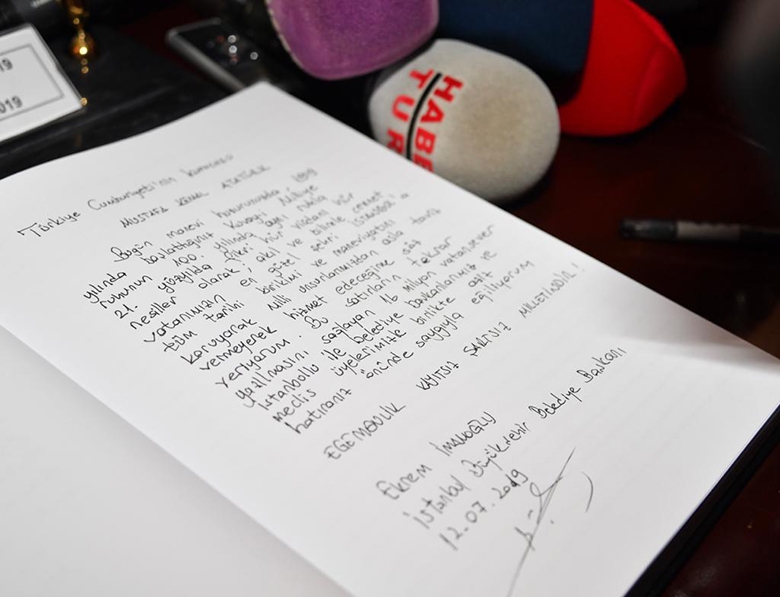 19
2019
HABE
TUR
Türkiye Cumhuriyeti'nin kurucusu
MUSTAFA KEMAL ATATÜRK
Bugün manevi huzurunuzda, 1919
yılında başlattığınız Kuvayi Milliye
ruhunun 100. yılında aynı ruhla
21. yüzyılda fikri hür vicdanı hür
nesiller olarak; akıl ve bilimle cennet
vatanımızın en güzel şehri İstanbul'a
tüm tarihi birikimi ve maneviyatını
koruyarak milli unsurlarımızdan asla taviz
vermeyerek hizmet edeceğime söz
veriyorum. Bu satırların tekrar
yazılmasını sağlayan 16 milyon vatansever
İstanbullu ile belediye başkanlarımız ve
meclis üyelerimizle birlikte aziz
hatıranız önünde saygıyla eğiliyorum
EGEMENLİK KAYITSIZ ŞARTSIZ MİLLETİNDİR!
Ekrem İMAMOĞLU
İstanbul Büyükşehir Belediye Başkanı
12.07.2019